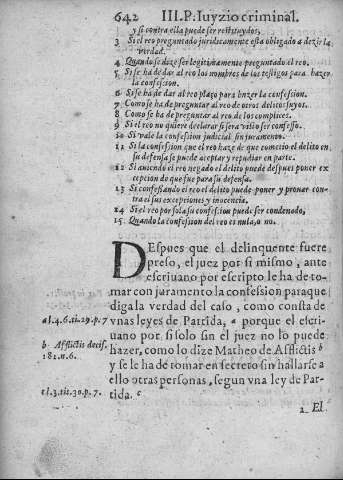 642 III.P. Iuyzio criminal.
y si contra ella puede ser restituydos.
3 Si el reo preguntado juridicamente està obligado a dezir la
verdad.
4 Quando se dize ser legitimamente preguntado el reo.
5 Si se ha de dar al reo los nombres de los testigos para hazer
la confession.
6 Si se ha de dar al reo plazo para hazer la confession.
7 Como se ha de preguntar al reo de otros delitos suyos.
8 Como se ha de preguntar al reo de los complices.
9 Si el reo no quiere declarar si sera visto ser confesso.
10 Si vale la confession judicial sin juramento.
11 Si la confession que el reo haze de que cometio el delito en
su defensa se puede aceptar y repudiar en parte.
12 Si auiendo el reo negado el delito puede despues poner ex
cepcion de que fue para su defensa.
13 Si confessando el reo el delito puede poner y prouar con-
tra el sus excepciones y inocencia.
14 Si el reo por sola su confession puede ser condenado,
15 Quando la confession del reo es nula, o no.
DEspues que el delinquente fuere
preso, el juez por si mismo, ante
escriuano por escripto le ha de to-
mar con juramento la confession paraque
diga la verdad del caso, como consta de
vnas leyes de Partida, a porque el escri-
uano por si solo sin el juez no lo puede
hazer, como lo dize Matheo de Afflictis b
y se le ha de tomar en secreto sin hallarse a
ello otras personas, segun vna ley de Par-
tida. c
a l.4.6. ti.29.p.7
b Afflictis decis.
181.n.6.
c l.3.tit.30.p.7.
2 El